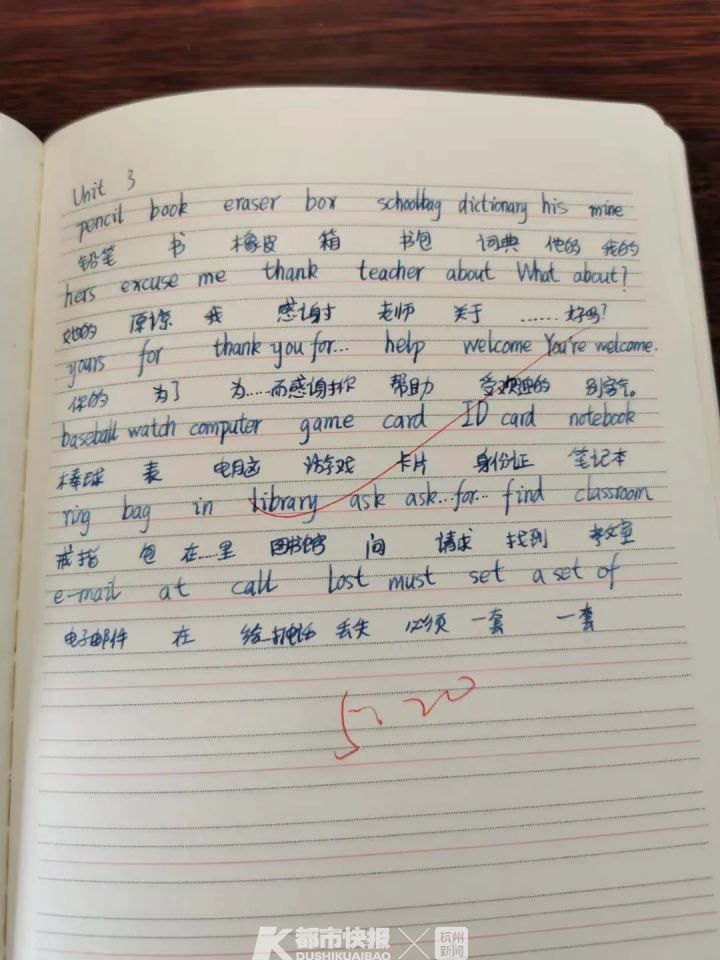 Unit 3
pencil book eraser box schoolbag dictionary his mine
铅笔 书 橡皮 箱 书包 词典 他的 我的
hers excuse me thank teacher about What about?
她的 原谅 我 感谢 老师 关于 ……好吗?
yours for thank you for... help welcome You're welcome.
你的 为了 为……而感谢你 帮助 受欢迎的 别客气。
baseball watch computer game card ID card notebook
棒球 表 电脑 游戏 卡片 身份证 笔记本
ring bag in library ask ask...for... find classroom
戒指 包 在……里 图书馆 问 请求 找到 教室
e-mail at call lost must set a set of
电子邮件 在 给打电话 丢失 必须 一套 一套
5.20
都市快报 杭州新闻
DUSHIKUAIBAO